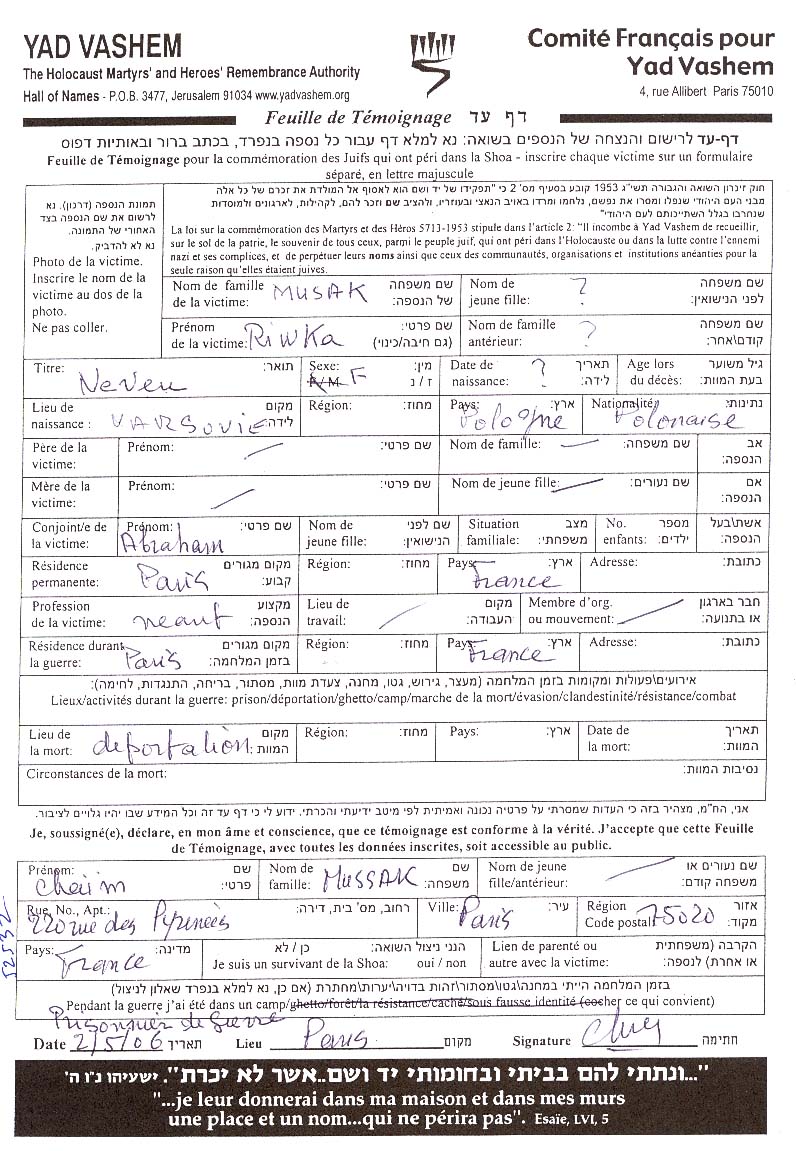 YAD VASHEM
The Holocaust Martyrs' and Heroes' Remembrance Authority
Hall of Names - P.O.B. 3477, Jerusalem 91034 www.yadvashem.org
Comité Français pour
Yad Vashem
4, rue Allibert Paris 75010
Feuille de Témoignage דף עד
דף-עד לרישום והנצחה של הנספים בשואה: נא למלא דף עבור כל נספה בנפרד, בכתב ברור ובאותיות דפוס
Feuille de Témoignage pour la commémoration des Juifs qui ont péri dans la Shoa - inscrire chaque victime sur un formulaire
séparé, en lettre majuscule
תמונת הנספה (דרכון). נא
לרשום את שם הנספה בצד
האחורי של התמונה.
נא לא להדביק.
Photo de la victime.
Inscrire le nom de la
victime au dos de la
photo.
Ne pas coller.
חוק זיכרון השואה והגבורה תשי"ג 1953 קובע בסעיף מס' 2 כי "תפקידו של יד ושם הוא לאסוף אל המולדת את זכרם של כל אלה
מבני העם היהודי שנפלו ומסרו את נפשם, נלחמו ומרדו באויב הנאצי ובעוזריו, ולהציב שם וזכר להם, לקהילות, לארגונים ולמוסדות
שנחרבו בגלל השתייכותם לעם היהודי"
La loi sur la commémoration des Martyrs et des Héros 5713-1953 stipule dans l'article 2: "Il incombe à Yad Vashem de recueillir,
sur le sol de la patrie, le souvenir de tous ceux, parmi le peuple juif, qui ont péri dans l'Holocauste ou dans la lutte contre l'ennemi
nazi et ses complices, et de perpétuer leurs noms ainsi que ceux des communautés, organisations et institutions anéanties pour la
seule raison qu'elles étaient juives.
Nom de famille de la victime: MUSAK שם משפחה של הנספה: Nom de jeune fille: ? שם משפחה לפני הנישואין:
Prénom de la victime: RiWKa שם פרטי: (גם חיבה/כינוי) Nom de famille antérieur: ? שם משפחה קודם\אחר:
Titre: Neveu תואר: Sexe: F/M F מין: ז / נ Date de naissance: ? תאריך לידה: Age lors du décès: גיל משוער בעת המוות:
Lieu de naissance : VARSOVIE מקום לידה: Région: מחוז: Pays: Pologne ארץ: Nationalité: Polonaise נתינות:
Père de la victime: Prénom: שם פרטי: Nom de famille: שם משפחה: אב הנספה:
Mère de la victime: Prénom: שם פרטי: Nom de jeune fille: שם נעורים: אם הנספה:
Conjoint/e de la victime: Prénom: Abraham שם פרטי: Nom de jeune fille: שם לפני הנישואין: Situation familiale: מצב משפחתי: No. enfants: מספר ילדים: אשת\בעל הנספה:
Résidence permanente: Paris מקום מגורים קבוע: Région: מחוז: Pays: France ארץ: Adresse: כתובת:
Profession de la victime: neant מקצוע הנספה: Lieu de travail: מקום העבודה: Membre d'org. ou mouvement: חבר בארגון או בתנועה:
Résidence durant la guerre: Paris מקום מגורים בזמן המלחמה: Région: מחוז: Pays: France ארץ: Adresse: כתובת:
אירועים\פעולות ומקומות בזמן המלחמה (מעצר, גירוש, גטו, מחנה, צעדת מוות, מסתור, בריחה, התנגדות, לחימה):
Lieux/activités durant la guerre: prison/déportation/ghetto/camp/marche de la mort/évasion/clandestinité/résistance/combat
Lieu de la mort: deportation מקום המוות: Région: מחוז: Pays: ארץ: Date de la mort: תאריך המוות:
Circonstances de la mort: נסיבות המוות:
אני, הח"מ, מצהיר בזה כי העדות שמסרתי על פרטיה נכונה ואמיתית לפי מיטב ידיעתי והכרתי. ידוע לי כי דף עד זה וכל המידע שבו יהיו גלויים לציבור.
Je, soussigné(e), déclare, en mon âme et conscience, que ce témoignage est conforme à la vérité. J'accepte que cette Feuille
de Témoignage, avec toutes les données inscrites, soit accessible au public.
Prénom: Chaim שם פרטי: Nom de famille: MUSSAK שם משפחה: Nom de jeune fille/antérieur: שם נעורים או משפחה קודם:
Rue, No., Apt.: 220 rue des Pyrénées רחוב, מס' בית, דירה: Ville: Paris עיר: Région Code postal 75020 אזור מקוד:
Pays: France מדינה: Je suis un survivant de la Shoa: oui / non הנני ניצול השואה: כן / לא Lien de parenté ou autre avec la victime: הקרבה (משפחתית או אחרת) לנספה:
52532
בזמן המלחמה הייתי במחנה\גטו\מסתור\זהות בדויה\יערות\מחתרת (אם כן, נא למלא בנפרד שאלון לניצול)
Pendant la guerre j'ai été dans un camp/ghetto/forêt/la résistance/caché/sous fausse identité (cocher ce qui convient)
Prisonnier de guerre
Date 2/5/06 תאריך Lieu Paris מקום Signature חתימה
"...ונתתי להם בביתי ובחומותי יד ושם..אשר לא יכרת". ישעיהו נ"ו ה'
"...je leur donnerai dans ma maison et dans mes murs
une place et un nom...qui ne périra pas". Esaïe, LVI, 5